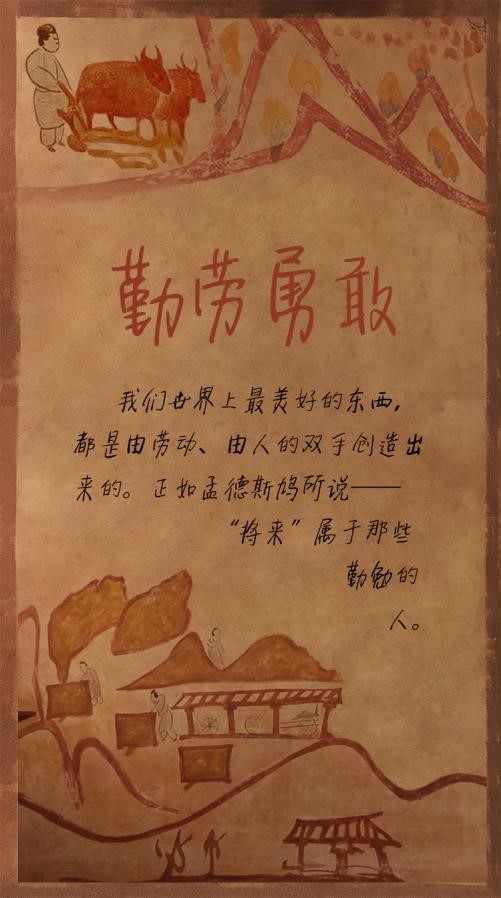 勤劳勇敢
我们世界上最美好的东西,
都是由劳动、由人的双手创造出
来的。正如孟德斯鸠所说——
“将来”属于那些
勤勉的
人。